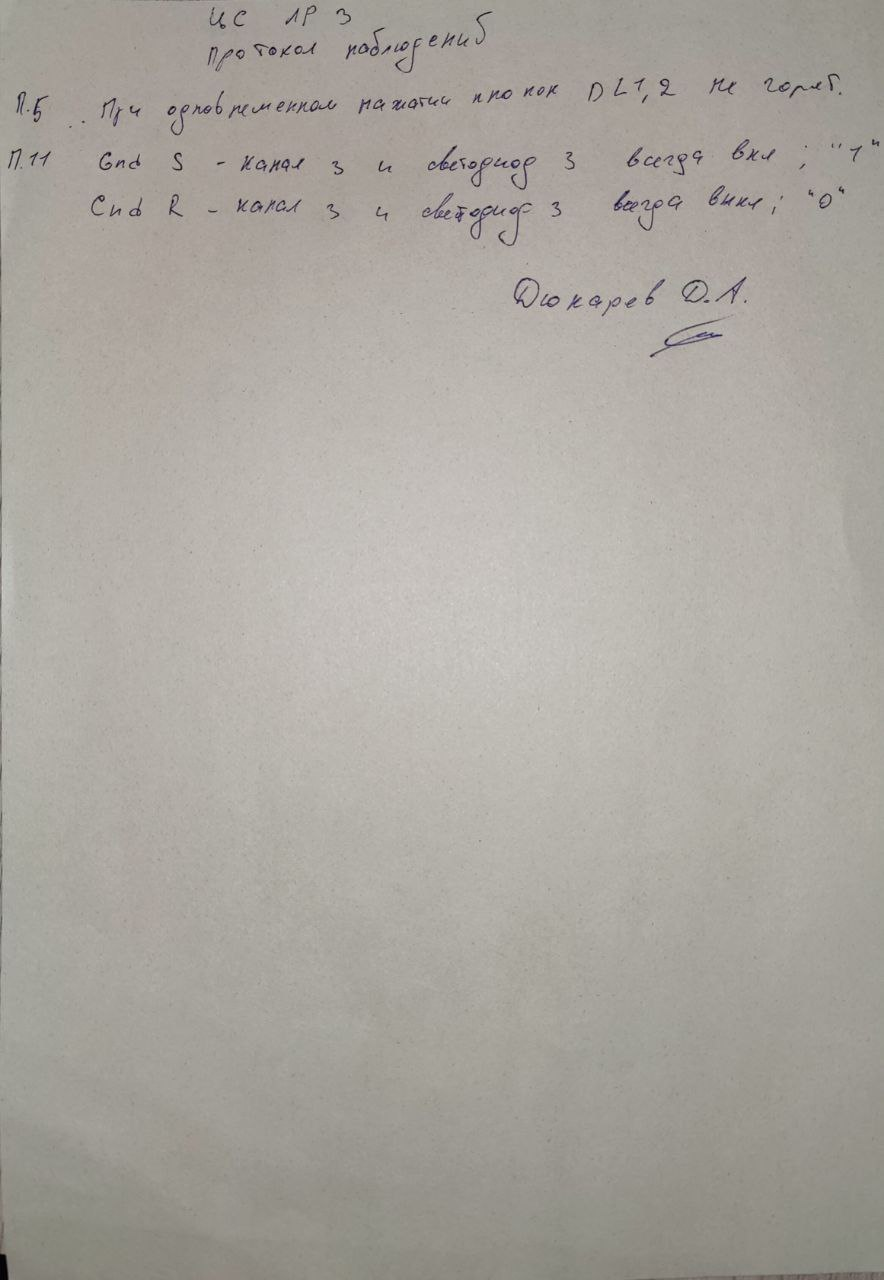 ЦС ЛР 3
Протокол наблюдений
П.5 При одновременном нажатии кнопок DL1,2 не горят.
П.11 Gnd S - канал 3 и светодиод 3 всегда вкл; "1"
Gnd R - канал 3 и светодиод 3 всегда выкл; "0"
Дюкарев Д.А.